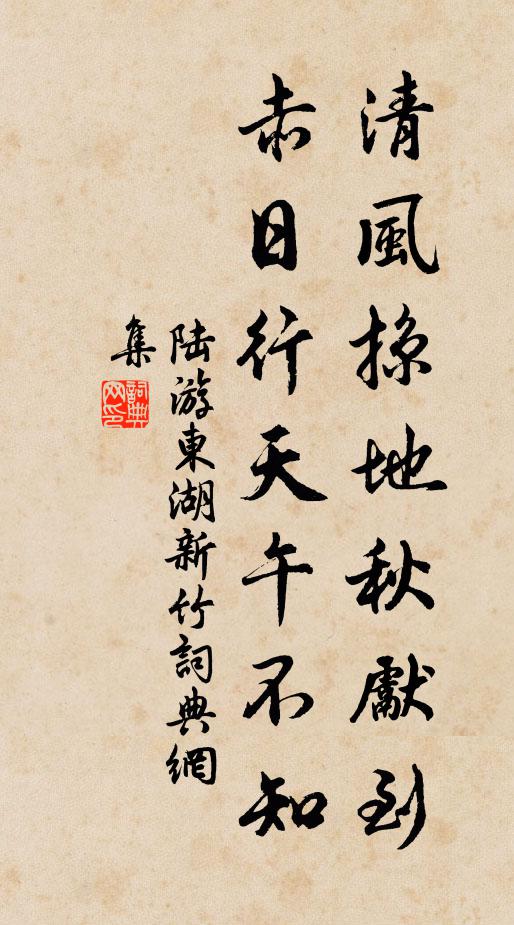 清風掠地秋獻到
赤日行天午不知
陸游東湖新竹詞典網
集
詞典
网印